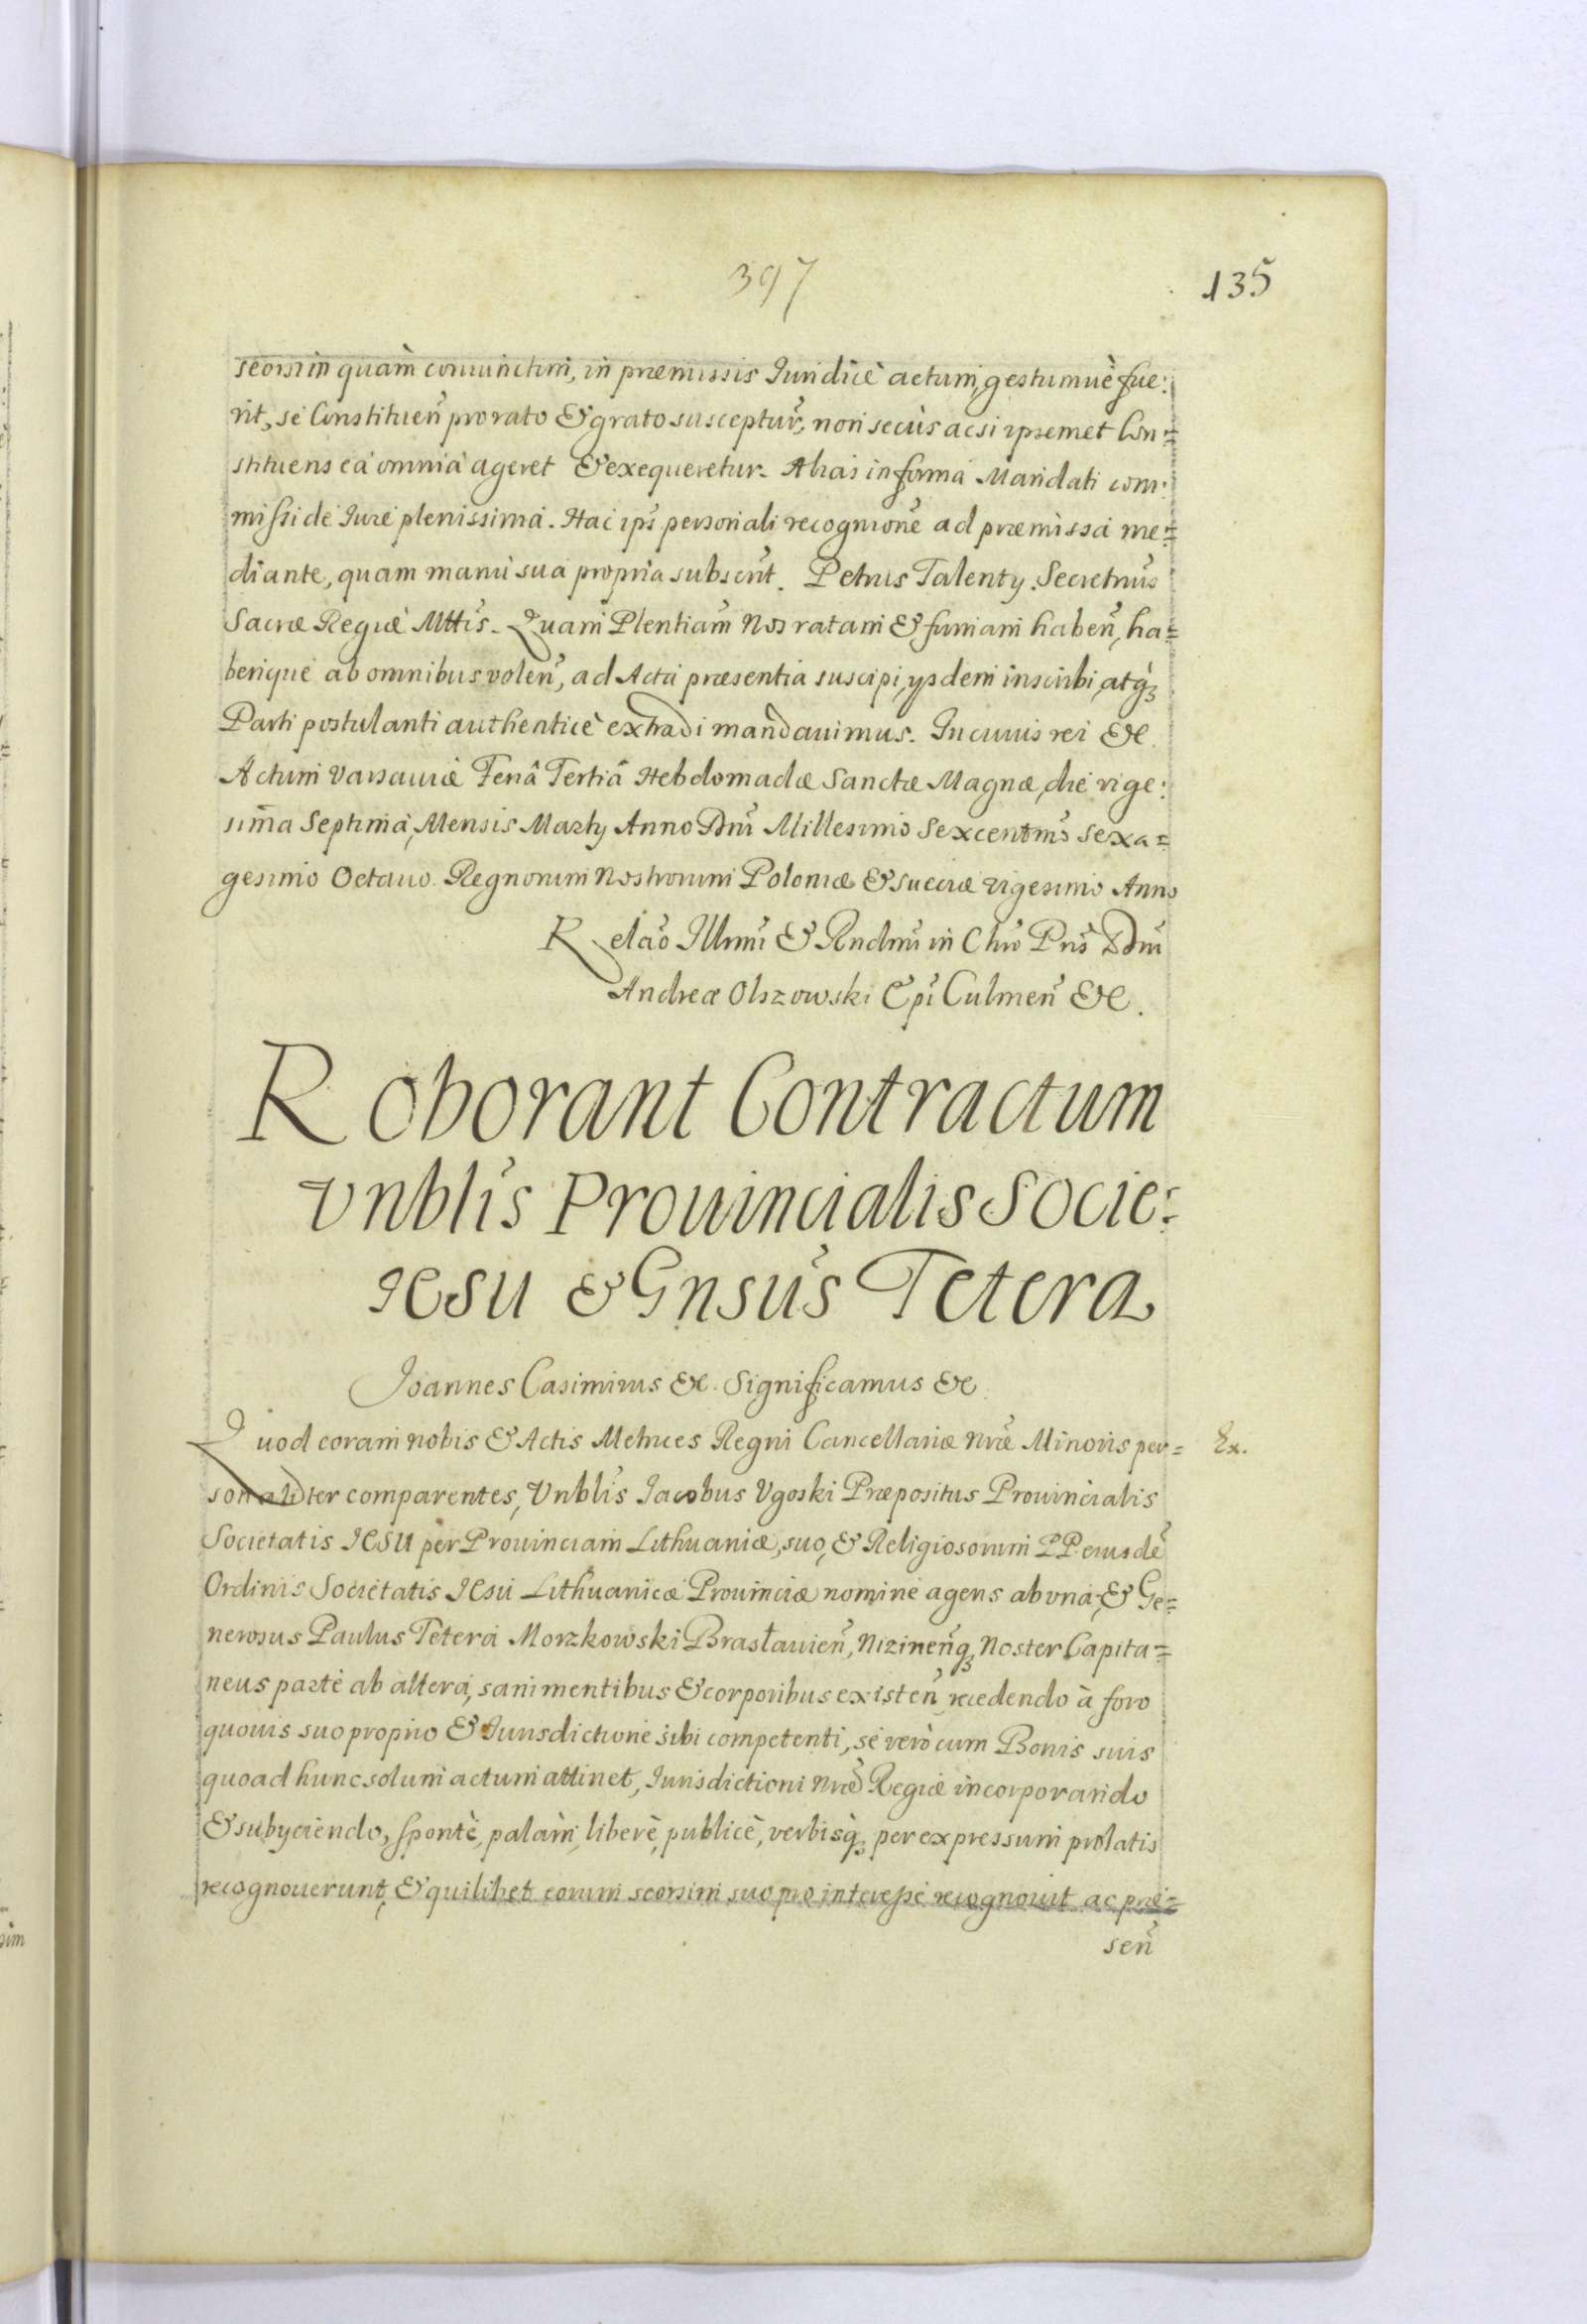 397
135
seorsim quàm coniunctim, in præmissis Iuridicè actum, gestumuè fue:
rit, se Constituen̄ pro rato & grato susceptur̄, non secùs ac si ipsemet Con=
stituens ea omnia ageret & exequeretur. Alias in forma Mandati com:
missi de Iure plenissima. Hac ips̄ personali recognione ad præmissa me=
diante, quam manu sua propria subscrit. Petrus Talenty. Secretrius
Sacræ Regiæ Mttis. Quam Plentiam Nos ratam & firmam haben̄, ha=
berique ab omnibus volen̄, ad Acta præsentia suscipi, ysdem inscribi, atq́3
Parti postulanti authenticè extradi mandauimus. In cuius rei &c.
Actum Varsauiæ Feriâ Tertiâ Hebdomadæ Sanctæ Magnæ, die vige:
sima Septima, Mensis Marty Anno Dni Millesimo Sexcentmo Sexa=
gesimo Octauo. Regnorum Nostrorum Poloniæ & Sueciæ vigesimo Anno
Relao Illmi & Rndmi in Chro Pris Ddni
Andreæ Olszowski Epi Culmen̄ &c.
Roborant Contractum
Vnblis Prouincialis Socie:
IESU & Gnsus Tetera
Joannes Casimirus &c. Significamus &c
Quod coram nobis & Actis Metrices Regni Cancellariæ nræ Minoris per=
Ex.
sonaliter comparentes, Vnblis Jacobus Vgoski Præpositus Prouincialis
Societatis IESU per Prouinciam Lithuaniæ, suo, & Religiosorum PP. eiusdē
Ordinis Societatis IESU Lithuanicæ Prouinciæ nomine agens ab vna, & Ge=
nerosus Paulus Tetera Morzkowski Brasłauien̄, Nizinenq́3 Noster Capita=
neus parte ab altera, sani mentibus & corporibus existen̄ recedendo à foro
quouis suo proprio & Iurisdictione sibi competenti, se verò cum Bonis suis
quoad hunc solum actum attinet, Iurisdictioni nræ Regiæ incorporando
& subyciendo, spontè, palàm, liberè, publicè, verbisq́3 per expressum prolatis
recognouerunt, & quilibet eorum seorsim suo pro interesse recognouit ac præ=
sen̄